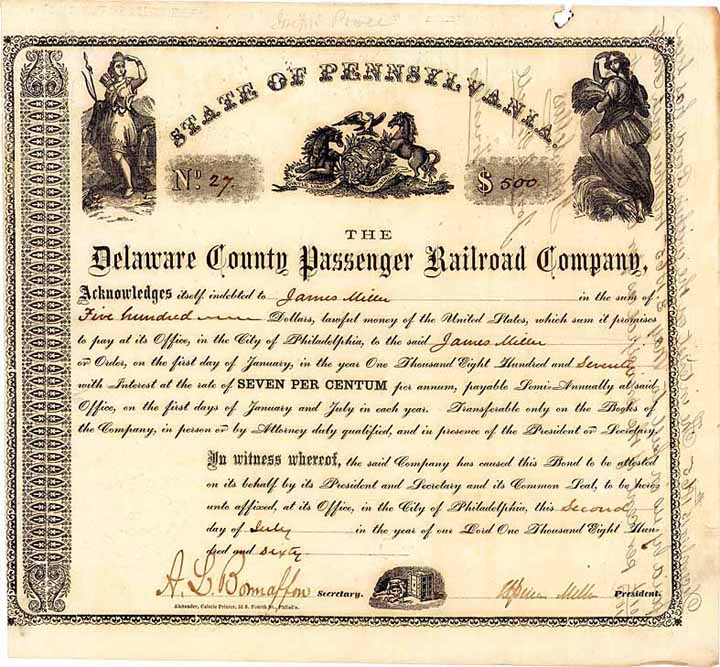 STATE OF PENNSYLVANIA.
No. 27.
$ 500
THE
Delaware County Passenger Railroad Company,
Acknowledges itself indebted to James Miller in the sum of
Five hundred Dollars, lawful money of the United States, which sum it promises
to pay at its Office, in the City of Philadelphia, to the said James Miller
or Order, on the first day of January, in the year One Thousand Eight Hundred and Seventy
with Interest at the rate of SEVEN PER CENTUM per annum, payable Semi-Annually at said
Office, on the first days of January and July in each year. Transferable only on the Books of
the Company, in person or by Attorney duly qualified, and in presence of the President or Secretary.
In witness whereof, the said Company has caused this Bond to be attested
on its behalf by its President and Secretary and its Common Seal, to be here-
unto affixed, at its Office, in the City of Philadelphia, this Second
day of July in the year of our Lord One Thousand Eight Hun-
dred and Sixty
A. L. Bonnaffon Secretary. Miller President.
Alexander, Caloric Printer, 52 S. Fourth St., Philad'a.